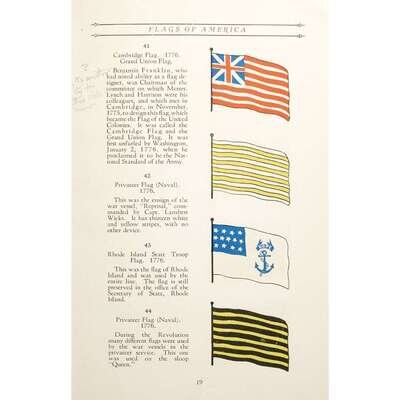 FLAGS OF AMERICA
41
Cambridge Flag. 1776.
Grand Union Flag.
Benjamin Franklin, who
had noted ability as a flag de-
signer, was Chairman of the
committee on which Messrs.
Lynch and Harrison were his
colleagues, and which met in
Cambridge, in November,
1775, to design this flag, which
became the Flag of the United
Colonies. It was called the
Cambridge Flag and the
Grand Union Flag. It was
first unfurled by Washington,
January 2, 1776, when he
proclaimed it to be the Nat-
ional Standard of the Army.
42
Privateer Flag (Naval).
1776.
This was the ensign of the
war vessel, "Reprisal," com-
manded by Capt. Lambert
Wicks. It has thirteen white
and yellow stripes, with no
other device.
43
Rhode Island State Troop
Flag. 1776.
This was the flag of Rhode
Island and was used by the
entire line. The flag is still
preserved in the office of the
Secretary of State, Rhode
Island.
44
Privateer Flag (Naval).
1776.
During the Revolution
many different flags were used
by the war vessels in the
privateer service. This one
was used on the sloop
"Queen."
19